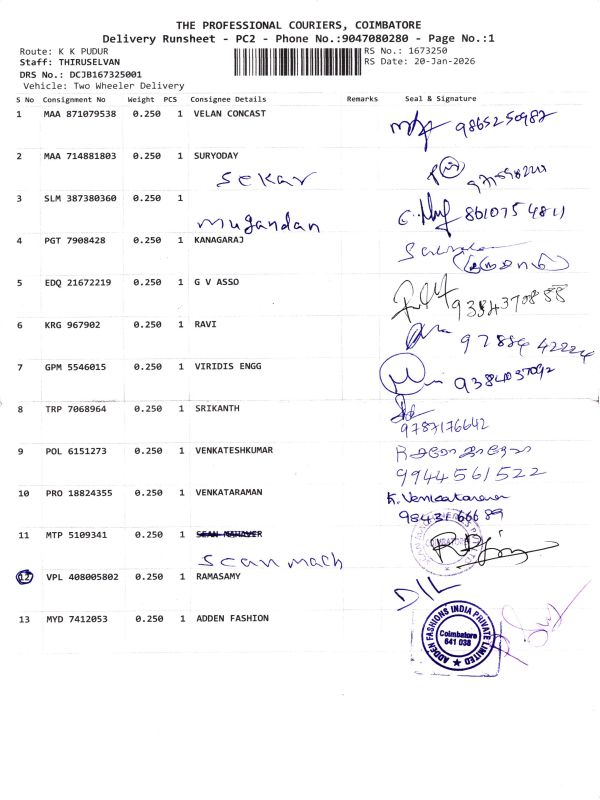 THE PROFESSIONAL COURIERS, COIMBATORE
Delivery Runsheet - PC2 - Phone No.:9047080280 - Page No.:1
Route: K K PUDUR
RS No.: 1673250
Staff: THIRUSELVAN
RS Date: 20-Jan-2026
DRS No.: DCJB167325001
Vehicle: Two Wheeler Delivery
S No Consignment No Weight PCS Consignee Details Remarks Seal & Signature
1 MAA 871079538 0.250 1 VELAN CONCAST 9865250987
2 MAA 714881803 0.250 1 SURYODAY
Sekar
3 SLM 387380360 0.250 1 8610754811
Mugandan
4 PGT 7908428 0.250 1 KANAGARAJ
5 EDQ 21672219 0.250 1 G V ASSO 9384370888
6 KRG 967902 0.250 1 RAVI 97884 42224
7 GPM 5546015 0.250 1 VIRIDIS ENGG 9384037092
8 TRP 7068964 0.250 1 SRIKANTH
9787176642
9 POL 6151273 0.250 1 VENKATESHKUMAR
9944561522
10 PRO 18824355 0.250 1 VENKATARAMAN K. Venkataraman
98431 66689
11 MTP 5109341 0.250 1 SEAN MAHAVER
Scan mach
12 VPL 408005802 0.250 1 RAMASAMY DIL
13 MYD 7412053 0.250 1 ADDEN FASHION
ADDEN FASHIONS INDIA PRIVATE LIMITED
Coimbatore
641 038